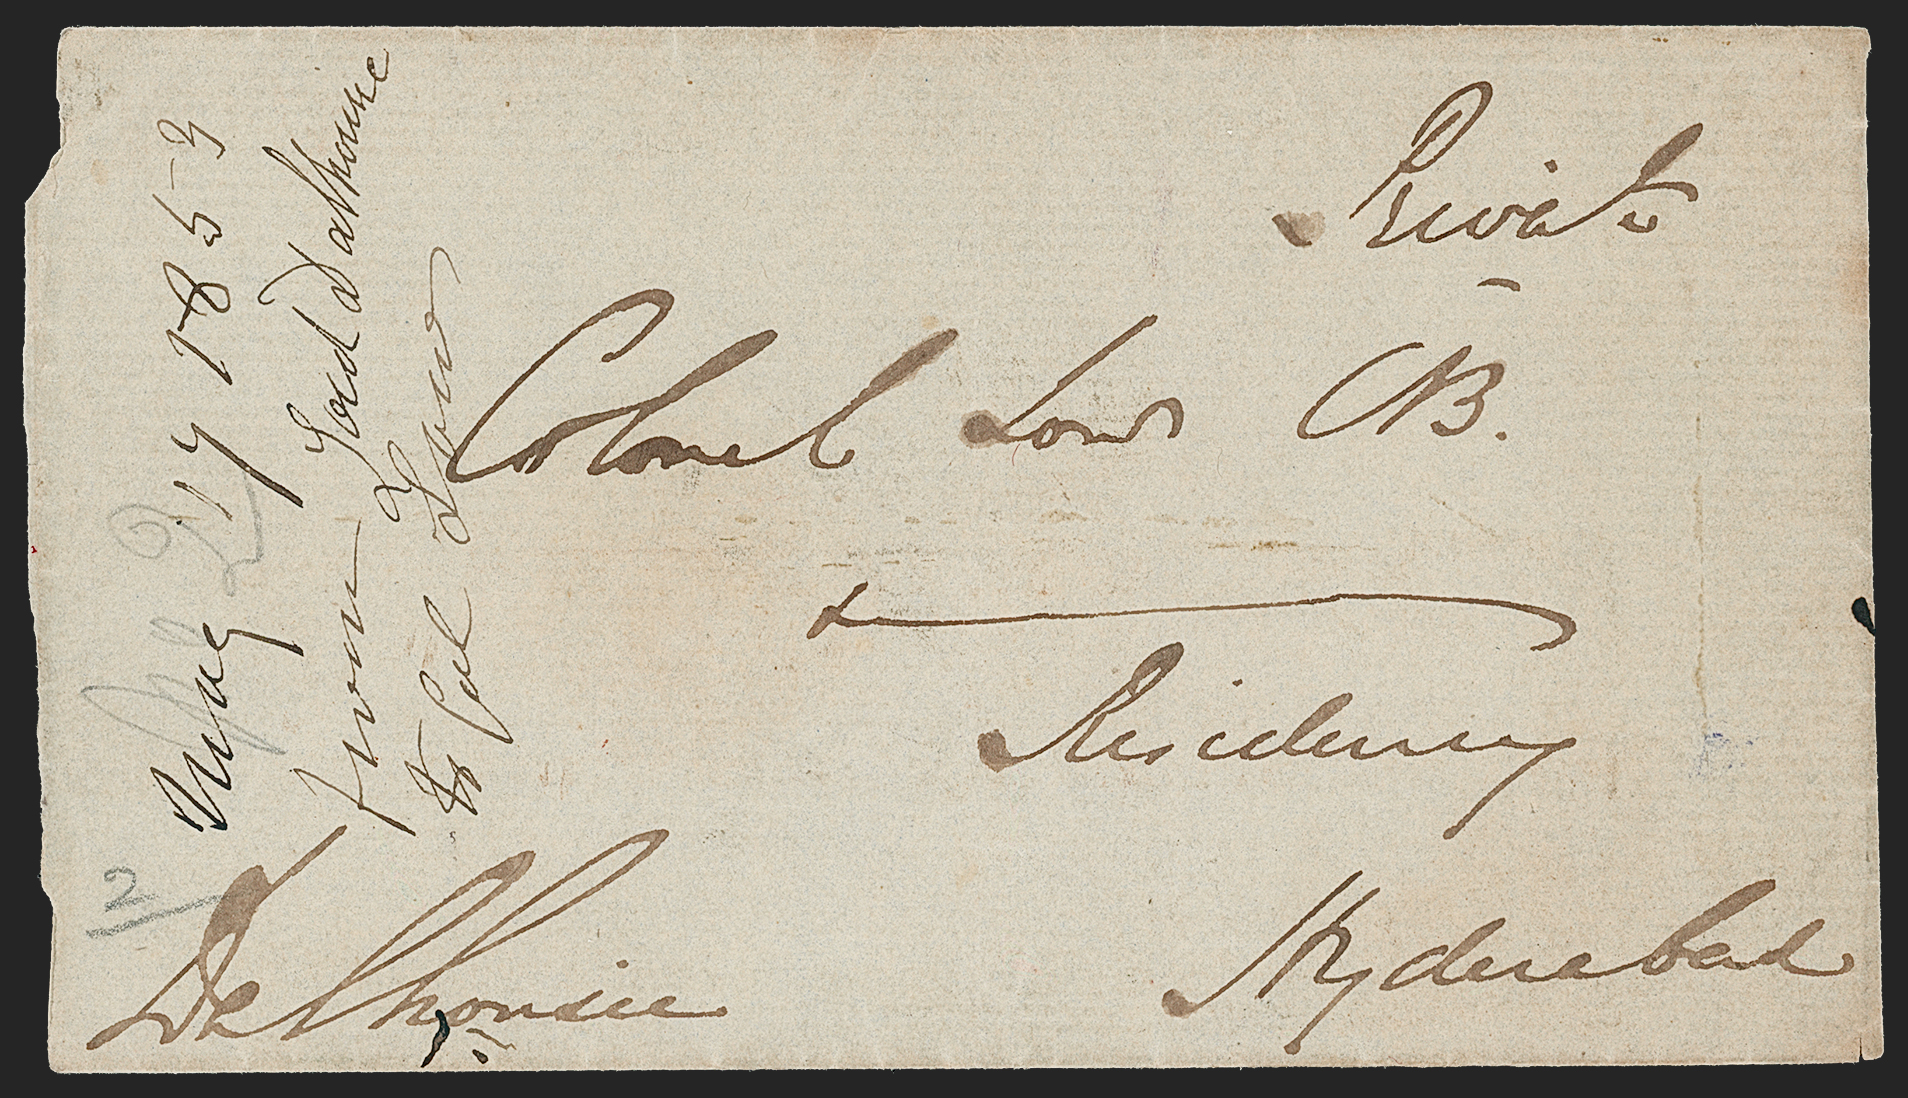 Private
Colonel Low CB.
Residency
Hyderabad
Dalhousie
May 17 1853
from Lord Dalhousie
to Col Low
2